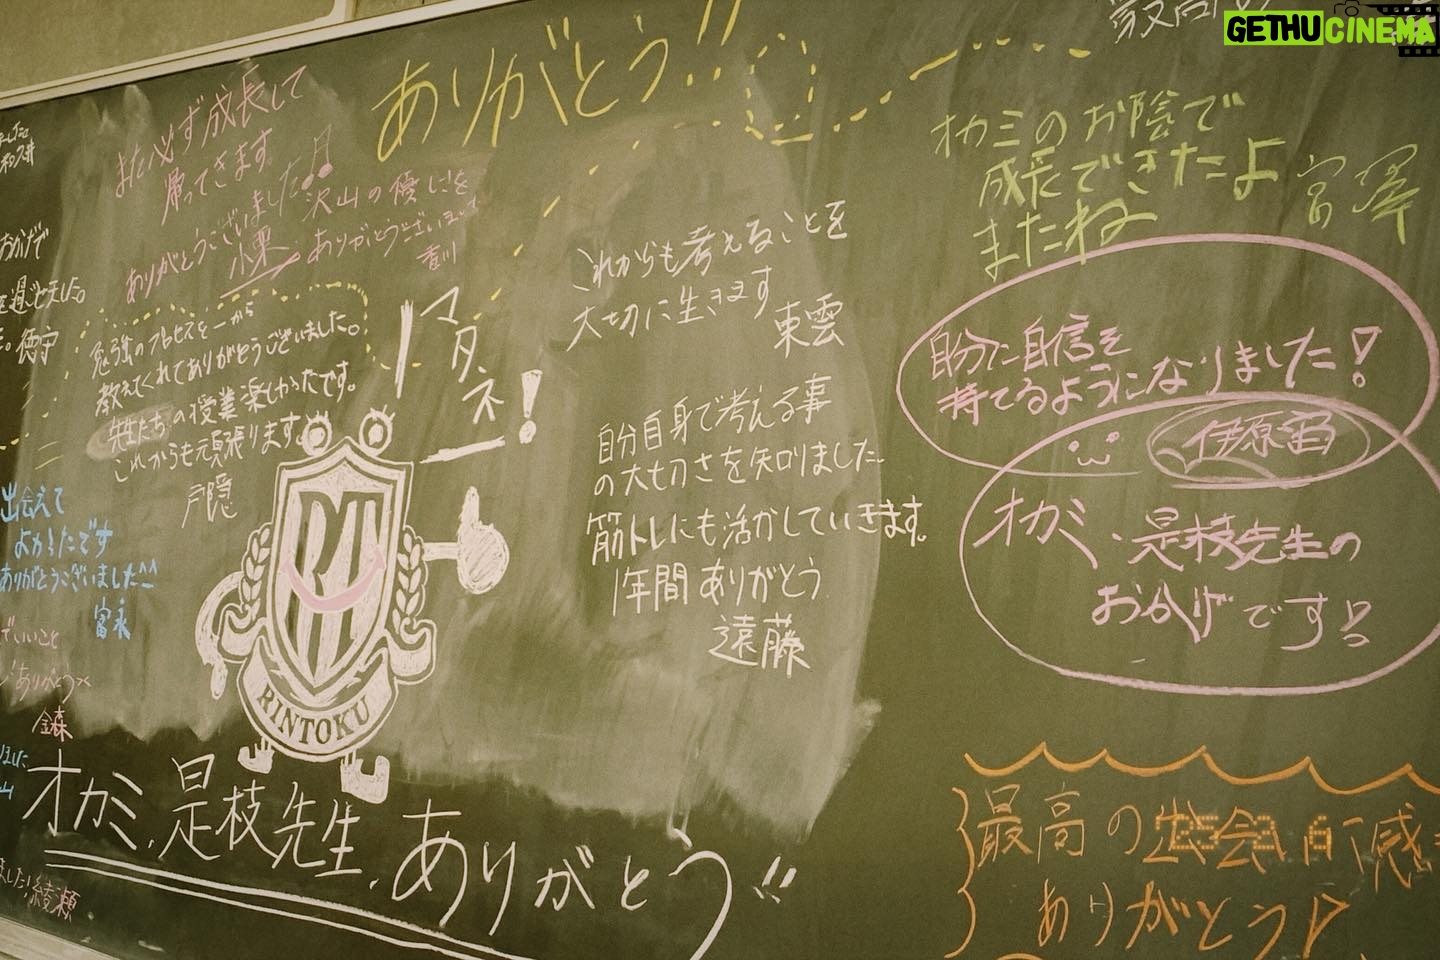 GETHUCINEMA
ありがとう!!
また必ず成長して
帰ってきます。
ありがとうございました
小栗
沢山の優しさを
ありがとうございました
香川
おかげで
徳守
勉強のプロセスを一から
教えてくれてありがとうございました。
先生たちの授業楽しかったです。
これからも頑張ります。
戸隠
マタネ!
RINTOKU
出会えて
よかったです
ありがとうございました^^
富永
でいいこと
ありがとう
金森
ました!綾瀬
オカミ、是枝先生、ありがとう!!
これからも考えることを
大切に生きます
東雲
自分自身で考える事
の大切さを知りました
筋トレにも活かしていきます。
1年間ありがとう
遠藤
オカミのお陰で
成長できたよ
またね
宮澤
自分に自信を
持てるようになりました!
伊原
オカミ、是枝先生の
おかげです!
最高の出会いに感
ありがとう